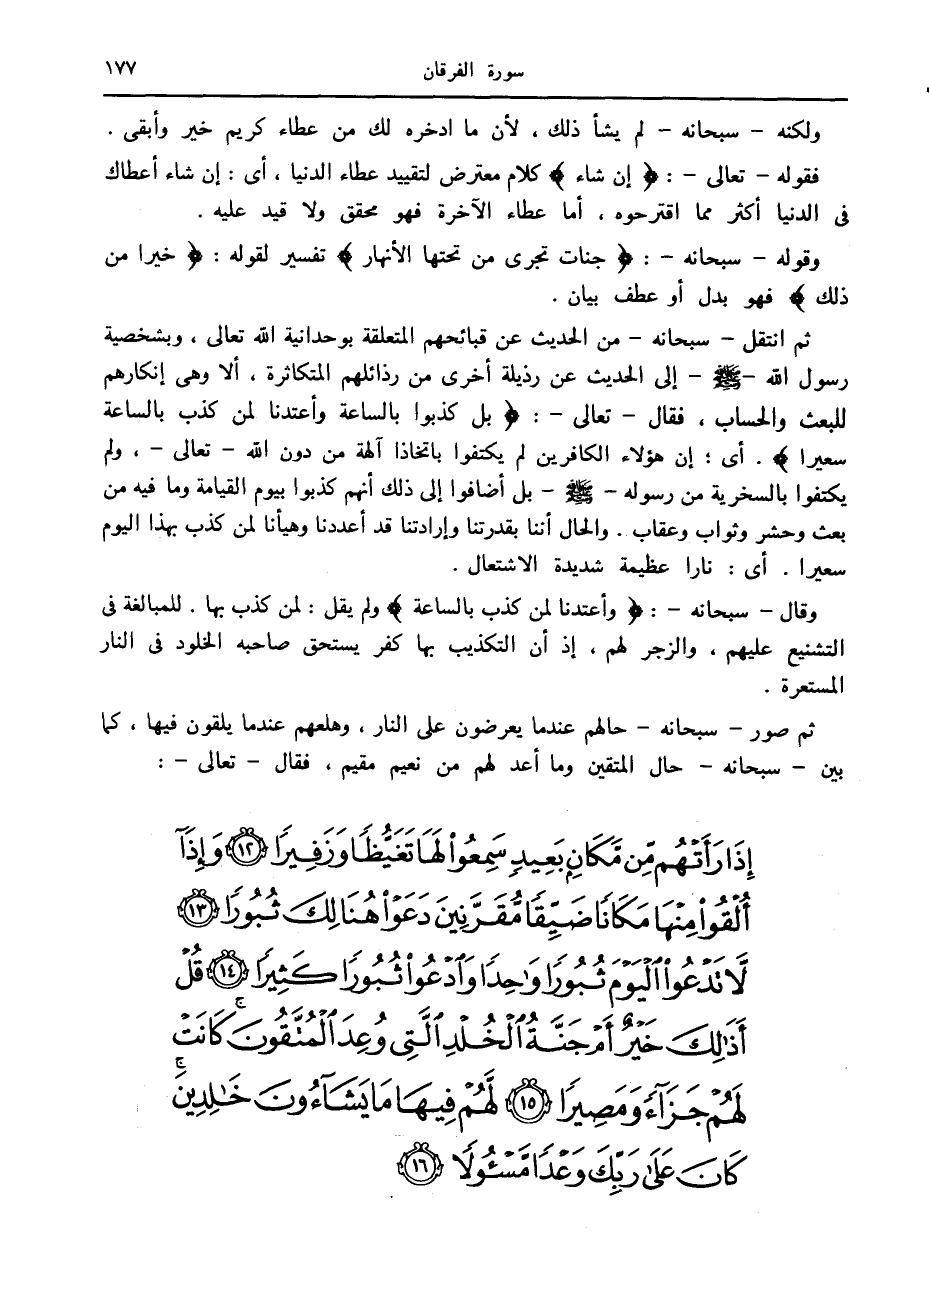 سورة الفرقان ١٧٧
ولكنه – سبحانه – لم يشأ ذلك ، لأن ما ادخره لك من عطاء كريم خير وأبقى .
فقوله – تعالى – : ﴿ إن شاء ﴾ كلام معترض لتقييد عطاء الدنيا ، أى : إن شاء أعطاك
فى الدنيا أكثر مما اقترحوه ، أما عطاء الآخرة فهو محقق ولا قيد عليه .
وقوله – سبحانه – : ﴿ جنات تجرى من تحتها الأنهار ﴾ تفسير لقوله : ﴿ خيرا من
ذلك ﴾ فهو بدل أو عطف بيان .
ثم انتقل – سبحانه – من الحديث عن قبائحهم المتعلقة بوحدانية الله تعالى ، وبشخصية
رسول الله – ﷺ – إلى الحديث عن رذيلة أخرى من رذائلهم المتكاثرة ، ألا وهى إنكارهم
للبعث والحساب ، فقال – تعالى – : ﴿ بل كذبوا بالساعة وأعتدنا لمن كذب بالساعة
سعيرا ﴾ . أى : إن هؤلاء الكافرين لم يكتفوا باتخاذا آلهة من دون الله – تعالى – ، ولم
يكتفوا بالسخرية من رسوله – ﷺ – بل أضافوا إلى ذلك أنهم كذبوا بيوم القيامة وما فيه من
بعث وحشر وثواب وعقاب . والحال أننا بقدرتنا وإرادتنا قد أعددنا وهيأنا لمن كذب بهذا اليوم
سعيرا . أى : نارا عظيمة شديدة الاشتعال .
وقال – سبحانه – : ﴿ وأعتدنا لمن كذب بالساعة ﴾ ولم يقل : لمن كذب بها . للمبالغة فى
التشنيع عليهم ، والزجر لهم ، إذ أن التكذيب بها كفر يستحق صاحبه الخلود فى النار
المستعرة .
ثم صور – سبحانه – حالهم عندما يعرضون على النار ، وهلعهم عندما يلقون فيها ، كما
بين – سبحانه – حال المتقين وما أعد لهم من نعيم مقيم ، فقال – تعالى – :
إِذَا رَأَتْهُم مِّن مَّكَانٍ بَعِيدٍ سَمِعُواْ لَهَا تَغَيُّظًا وَزَفِيرًا ١٢ وَإِذَآ
أُلْقُواْ مِنْهَا مَكَانًا ضَيِّقًا مُّقَرَّنِينَ دَعَوْاْ هُنَالِكَ ثُبُورًا ١٣
لَّا تَدْعُواْ ٱلْيَوْمَ ثُبُورًا وَٰحِدًا وَٱدْعُواْ ثُبُورًا كَثِيرًا ١٤ قُلْ
أَذَٰلِكَ خَيْرٌ أَمْ جَنَّةُ ٱلْخُلْدِ ٱلَّتِى وُعِدَ ٱلْمُتَّقُونَۚ كَانَتْ
لَهُمْ جَزَآءً وَمَصِيرًا ١٥ لَّهُمْ فِيهَا مَا يَشَآءُونَ خَٰلِدِينَۚ
كَانَ عَلَىٰ رَبِّكَ وَعْدًا مَّسْـُٔولًا ١٦